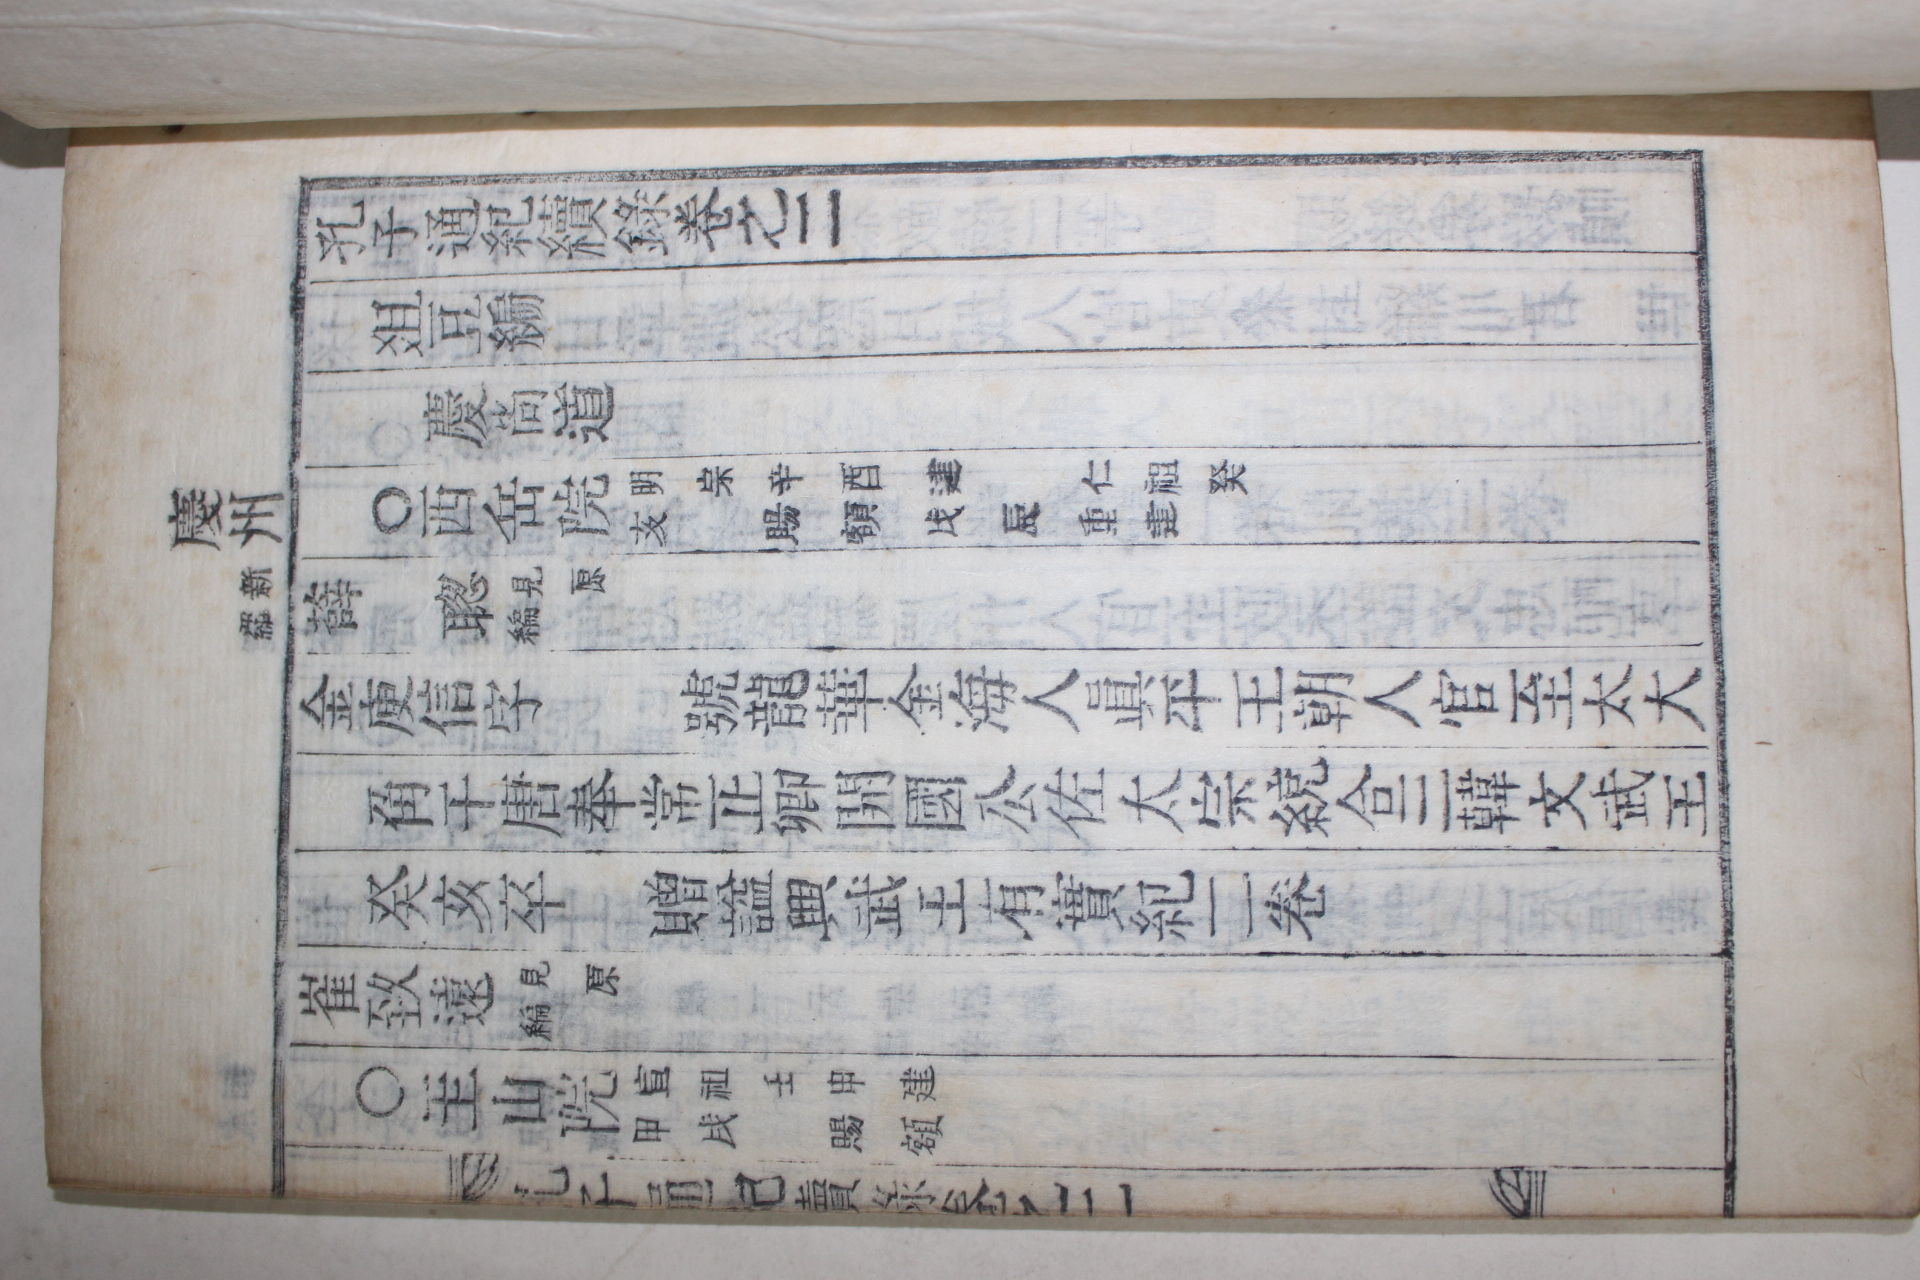 孔子通紀續錄卷之二
俎豆編
慶尙道
慶州
○西岳院 明宗辛酉建 仁祖癸
亥 賜額戊辰重建
新羅
薛聰 見原編
金庾信字 號龍華金海人眞平王朝人官至太大
角干唐奉常正卿開國公佐太宗統合三韓文武王
癸亥卒 贈諡興武王有實紀二卷
崔致遠 見原編
○玉山院 宣祖壬申建
甲戌 賜額
孔子通紀續錄卷之二